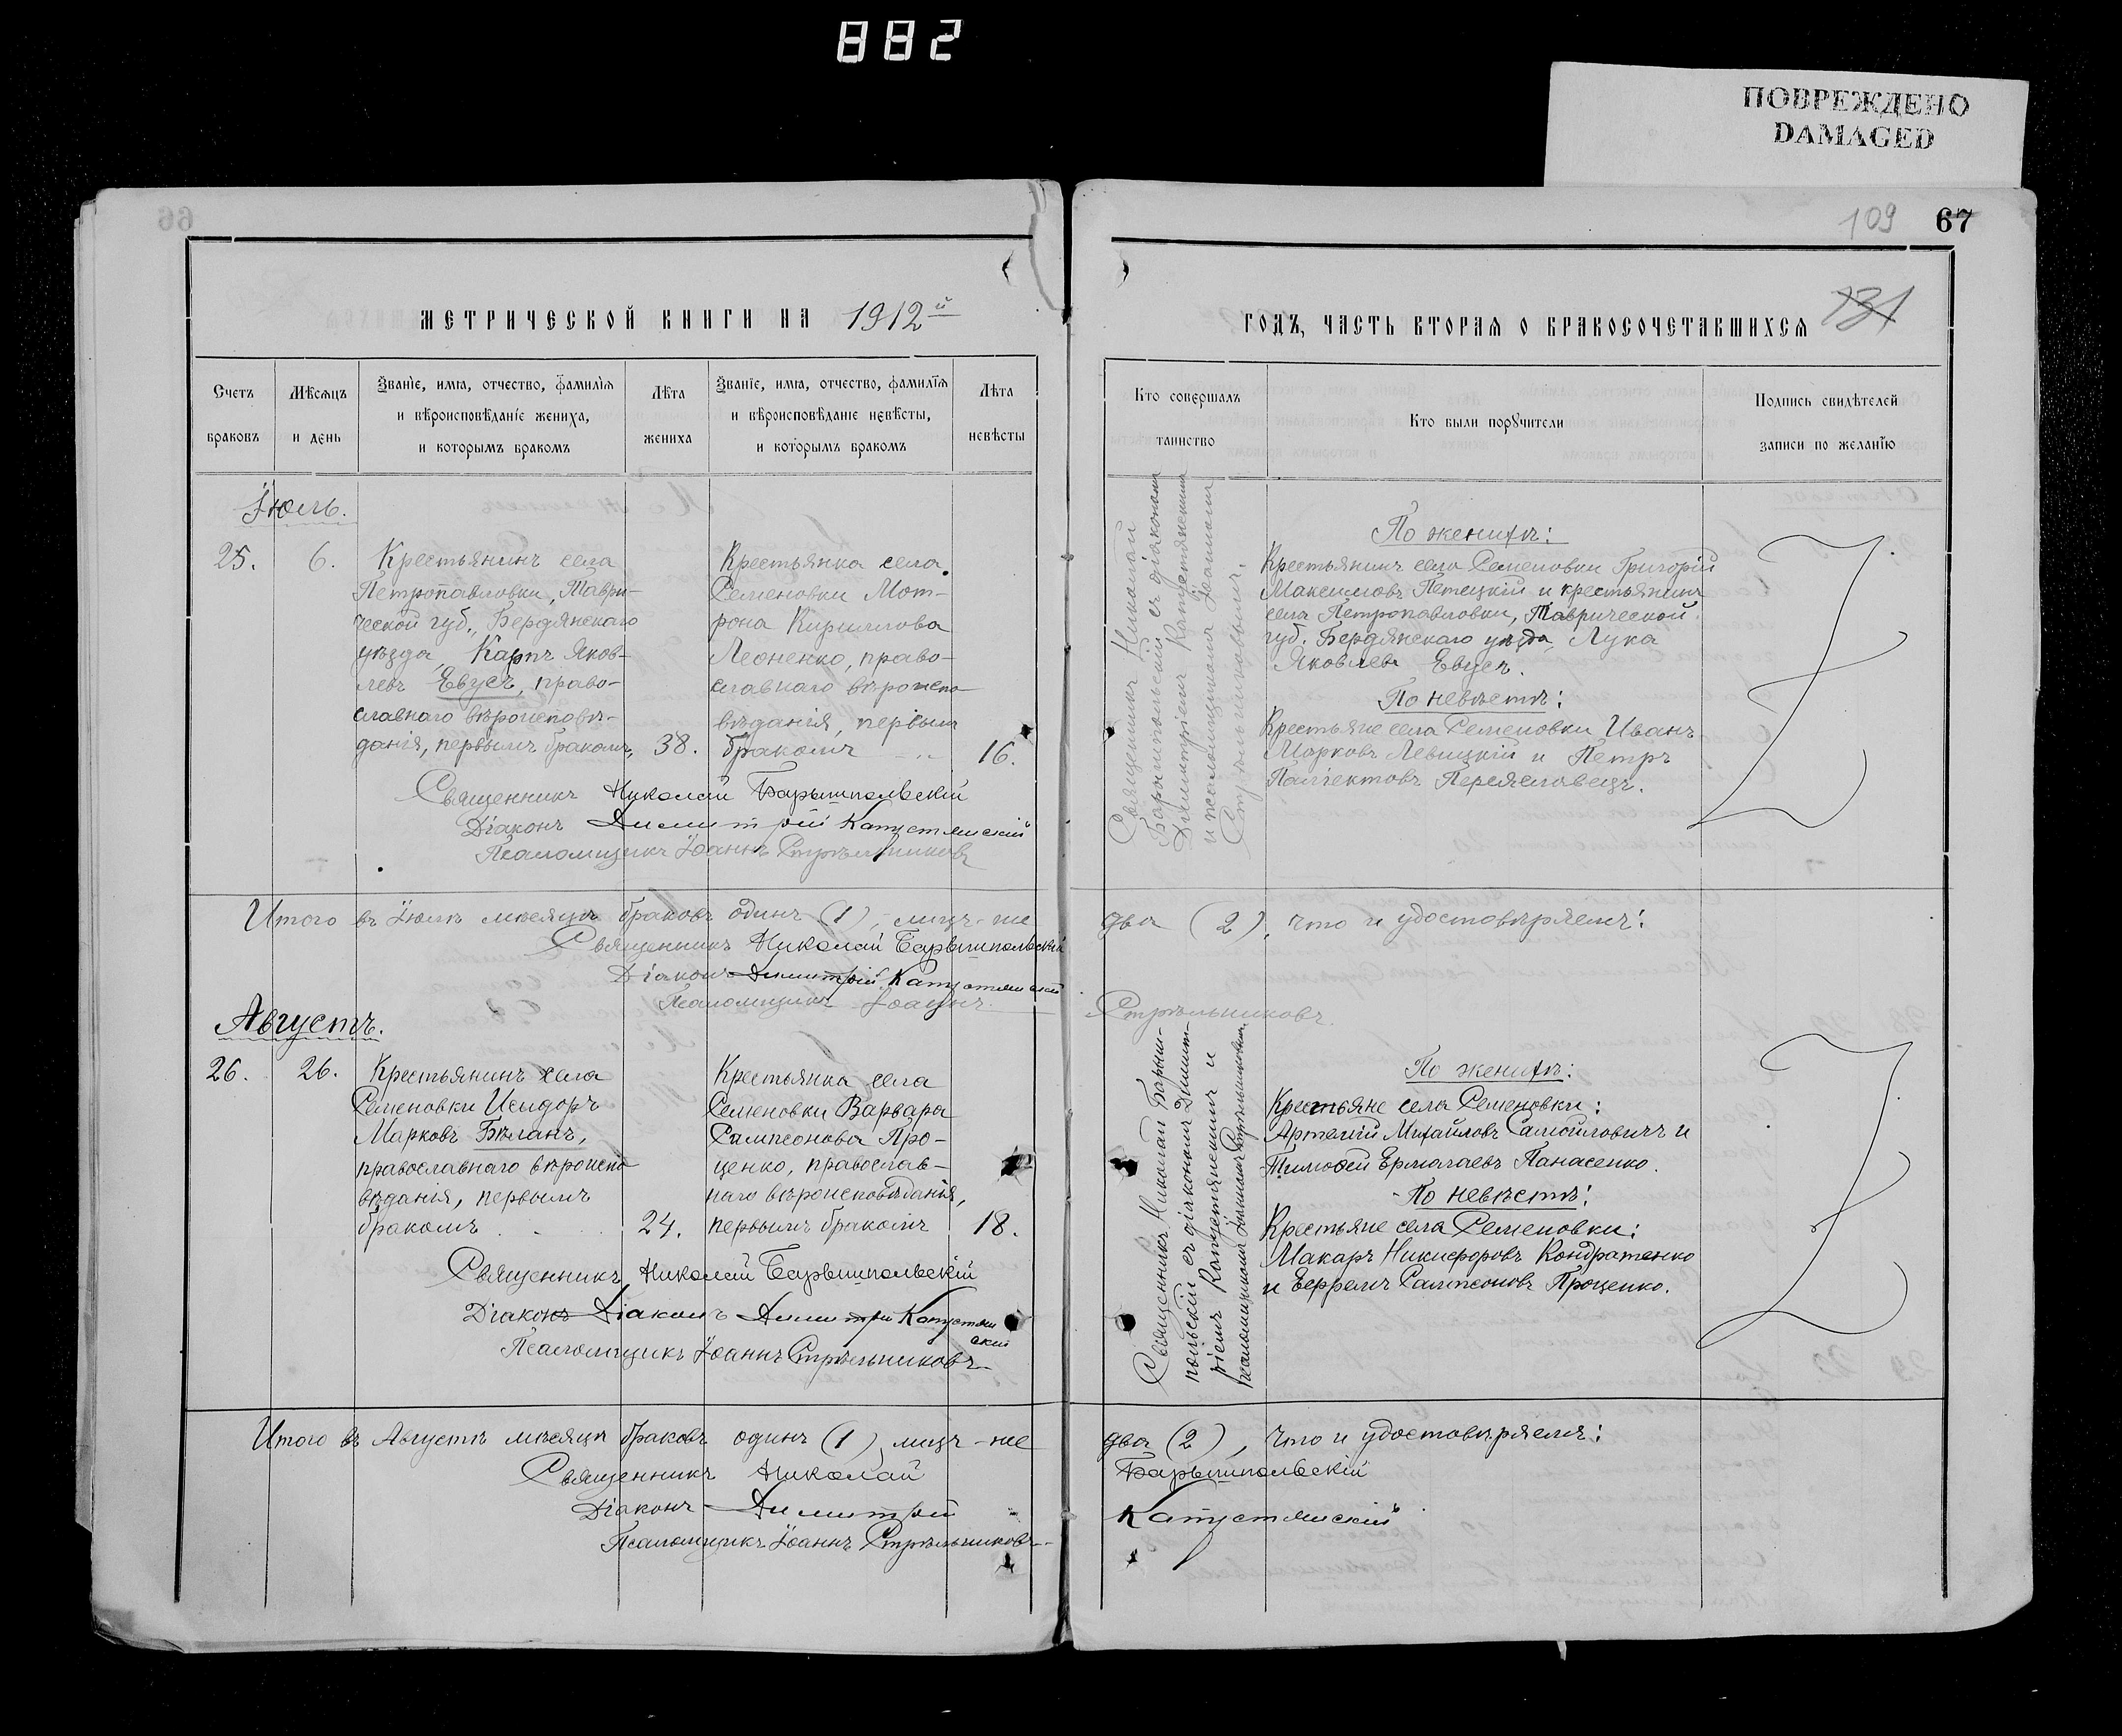 882
ПОВРЕЖДЕНО
DAMAGED
109 67
131
МЕТРИЧЕСКОЙ КНИГИ НА 1912й
Счетъ браковъ
Мѣсяцъ и день
Званіе, имя, отчество, фамилія
и вѣроисповѣданіе жениха,
и которымъ бракомъ
Лѣта жениха
Званіе, имя, отчество, фамилія
и вѣроисповѣданіе невѣсты,
и которымъ бракомъ
Лѣта невѣсты
Іюль.
25. 6.
Крестьянинъ села
Петропавловки, Таври-
ческой губ., Бердянскаго
уѣзда, Карпъ Яков-
левъ Евусъ, право-
славнаго вѣроисповѣ-
данія, первымъ бракомъ, 38.
Крестьянка села
Семеновки Мот-
рона Кириллова
Леоненко, право-
славнаго вѣроиспо-
вѣданія, первымъ
бракомъ 16.
Священникъ Николай Барышпольскій
Діаконъ Димитрій Капустянскій
Псаломщикъ Іоаннъ Стрѣльниковъ
Итого въ Іюлѣ мѣсяцѣ браковъ одинъ (1), лицъ-же
Священникъ Николай Барышпольскій
Діаконъ Димитрій Капустянскій
Псаломщикъ Іоаннъ
Августъ.
26. 26.
Крестьянинъ села
Семеновки Исидоръ
Марковъ Бѣланъ,
православнаго вѣроиспо-
вѣданія, первымъ
бракомъ 24.
Крестьянка села
Семеновки Варвара
Сампсонова Про-
ценко, православ-
наго вѣроисповѣданія,
первымъ бракомъ 18.
Священникъ Николай Барышпольскій
Діаконъ Діаконъ Димитрій Капустян
скій
Псаломщикъ Іоаннъ Стрѣльниковъ
Итого въ Августѣ мѣсяцѣ браковъ одинъ (1), лицъ-же
Священникъ Николай
Діаконъ Димитрій
Псаломщикъ Іоаннъ Стрѣльниковъ
ГОДЪ, ЧАСТЬ ВТОРАЯ О БРАКОСОЧЕТАВШИХСЯ
Кто совершалъ
таинство
Кто были поручители
Подпись свидѣтелей
записи по желанію
Священникъ Николай
Барышпольскій съ діакономъ
Димитріемъ Капустянскимъ
и псаломщикомъ Іоанномъ
Стрѣльниковымъ.
По женихѣ:
Крестьянинъ села Семеновки Григорій
Максимовъ Петецкій и крестьянинъ
села Петропавловки, Таврической
губ. Бердянскаго уѣзда, Лука
Яковлевъ Евусъ.
По невѣстѣ:
Крестьяне села Семеновки Иванъ
Марковъ Левицкій и Петръ
Переяславецъ.
два (2), что и удостовѣряемъ:
Стрѣльниковъ.
Священникъ Николай Барыш-
польскій съ діакономъ Димит-
ріемъ Капустянскимъ и
псаломщикомъ Іоанномъ Стрѣльниковымъ.
По женихѣ:
Крестьяне села Семеновки:
Артемій Михайловъ Самойловичъ и
Тимофей Ермолаевъ Панасенко.
По невѣстѣ:
Крестьяне села Семеновки:
Макаръ Никифоровъ Кондратенко
и Ефремъ Сампсоновъ Проценко.
два (2), что и удостовѣряемъ:
Барышпольскій
Капустянскій